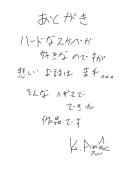 あとがき
ハードなスケベが
好きなのですが
悲しいお話は 苦手。。。
そんな ハザマで
できた
作品です